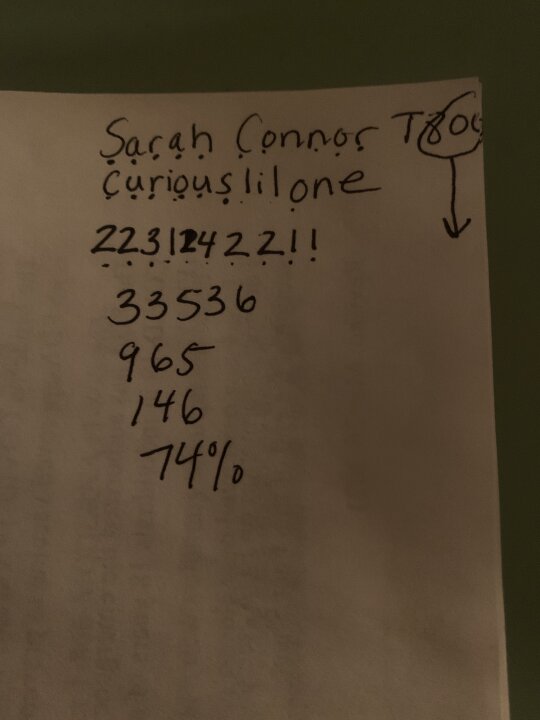 Sarah Connor T800
curiouslilone
2231242211
33536
965
146
74%